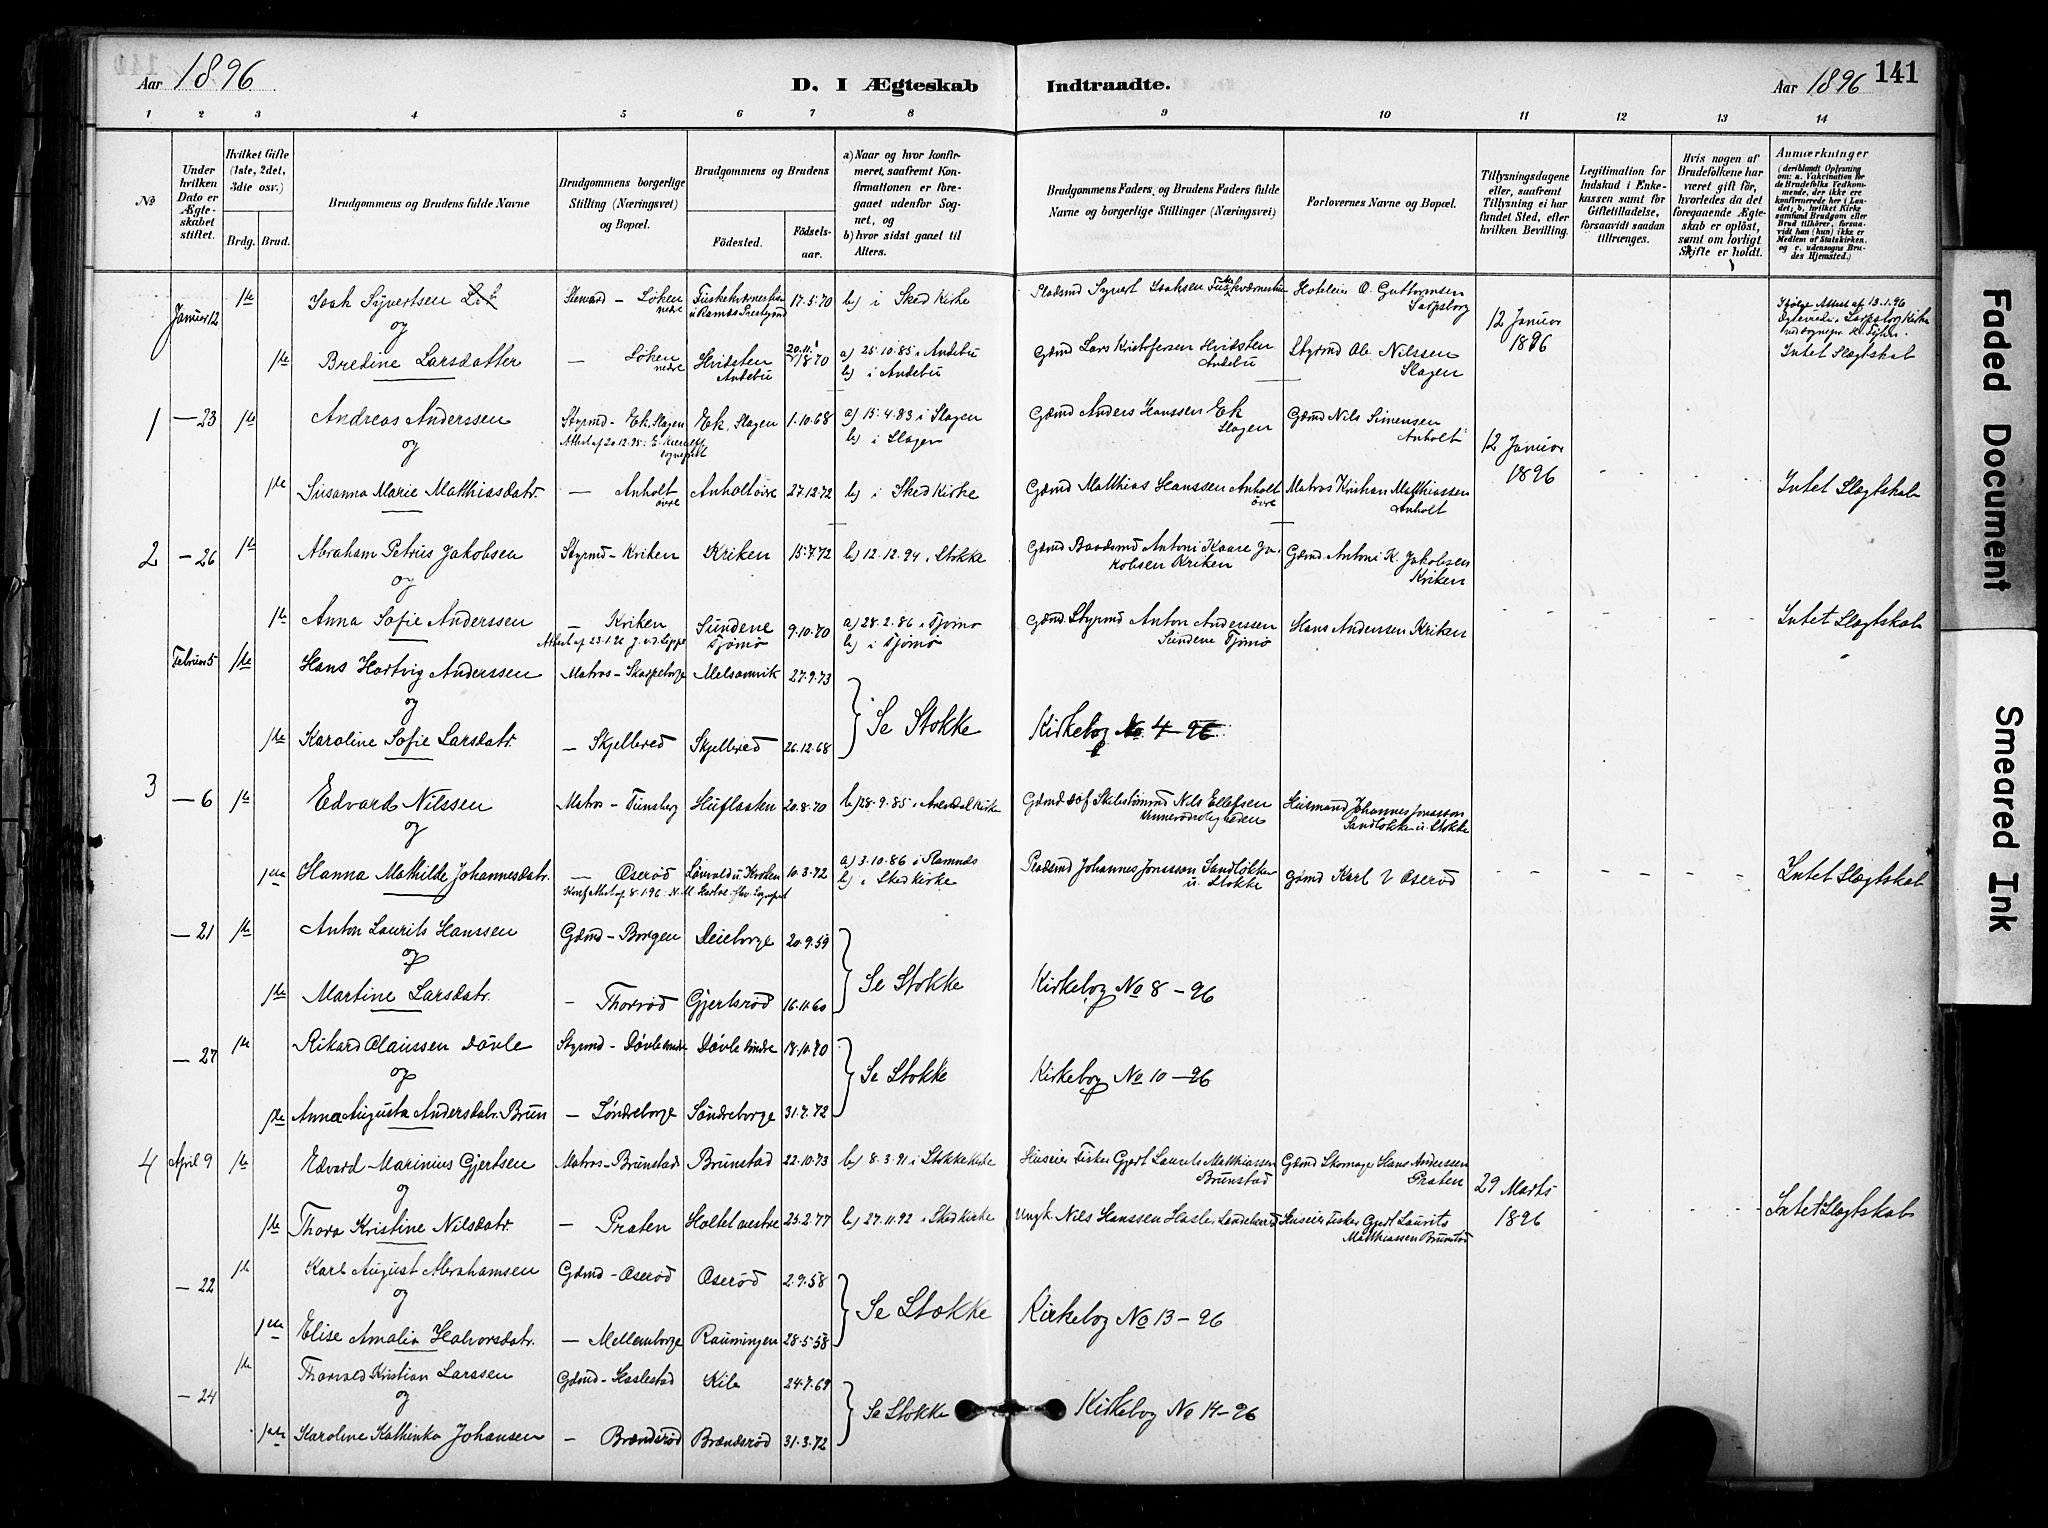 Aar 1896
D. I Ægteskab
Indtraadte.
Aar 1896
141
1 2 3 4 5 6 7 8 9 10 11 12 13 14
No
Under hvilken Dato er Ægteskabet stiftet.
Hvilket Gifte (1ste, 2det, 3die osv.)
Brdg. Brud.
Brudgommens og Brudens fulde Navne
Brudgommens borgerlige Stilling (Næringsvei) og Bopæl.
Brudgommens og Brudens
Fødested.
Fødselsaar.
a) Naar og hvor konfirmeret, saafremt Konfirmationen er foregaaet udenfor Sognet, og
b) hvor sidst gaaet til Alters.
Brudgommens Faders, og Brudens Faders fulde Navne og borgerlige Stillinger (Næringsvei)
Forlovernes Navne og Bopæl.
Tillysningsdagene eller, saafremt Tillysning ei har fundet Sted, efter hvilken Bevilling.
Legitimation for Indskud i Enkekassen samt for Giftetilladelse, forsaavidt saadan tiltrænges.
Hvis nogen af Brudefolkene har været gift før, hvorledes da det foregaaende Ægteskab er opløst, samt om lovligt Skifte er holdt.
Anmærkninger
(deriblandt Oplysning om: a. Vakcination for de Brudefolks Vedkommende, der ikke ere konfirmerede her i Landet; b. hvilket Kirkesamfund Brudgom eller Brud tilhører, forsaavidt han (hun) ikke er Medlem af Statskirken, og c. udensogns Brudes Hjemsted.)
Januar 12 1ste Isak Syvertsen Steward - Løken nedre 17.5.70 b) i Sked Kirke Pladsmd Syvert Isaksen Hoteleier O. Guttormsen Sarpsborg 12 Januar 1896
og
1ste Bredine Larsdatter — Løken nedre Hvidsten Andebu 20.11.1870 a) 25.10.85 i Andebu b) i Andebu Gdmd Lars Kristofersen Hvidsten Andebu Styrmd Ole Nilssen Slagen Intet Slægtskab
1 — 23 1ste Andreas Anderssen Styrmd - Ek, Slagen Ek, Slagen 1.10.68 a) 15.4.83 i Slagen b) i Slagen Gdmd Anders Hanssen Ek Slagen Gdmd Nils Simensen Anholt 12 Januar 1896
og
1ste Susanna Marie Matthiasdatr. — Anholt øvre Anholt øvre 27.12.72 b) i Sked Kirke Gdmd Matthias Hanssen Anholt øvre Matros Kristian Matthiassen Anholt Intet Slægtskab
2 — 26 1ste Abraham Petrus Jakobsen Styrmd - Kriken Kriken 15.7.72 b) 12.12.94 i Stokke Gdmd Baadsmd Antoni Kaare Jakobsen Kriken Gdmd Antoni K. Jakobsen Kriken
og
1ste Anna Sofie Anderssen — Kriken Sundene Tjømø 9.10.70 a) 28.2.86 i Tjømø b) i Tjømø Gdmd Styrmd Anton Anderssen Sundene Tjømø Hans Andersen Kriken Intet Slægtskab
Februar 5 1ste Hans Hartvig Anderssen Matros - Skarpeborge Melsomvik 27.9.73
og
1ste Karoline Sofie Larsdatr. — Skjellerød Skjellerød 26.12.68 Se Stokke Kirkebog No 4-96
3 — 6 1ste Edvard Nilssen Matros - Tunsberg Huflaaten 20.8.70 b) 28.9.85 i Arendal Kirke Nils Ellefsen Husmand Johannes Jonassen Sandløkke u. Stokke
og
Hanna Mathilde Johannesdatr. — Oserød 10.3.72 a) 3.10.86 i Ramnes b) i Sked Kirke Pladsmd Johannes Jonsson Sandløkke u. Stokke Gdmd Karl V Oserød Intet Slægtskab
— 21 1ste Anton Laurits Hanssen Gdmd - Borgen Deieborge 20.9.59
og
1ste Martine Larsdatr. — Thorrød Gjertsrød 16.11.60 Se Stokke Kirkebog No 8 - 96
— 27 1ste Rikard Claussen Døvle Styrmd - Døvle søndre Døvle søndre 18.10.70
og
1ste Anna Augusta Andersdatr. Brun — Søndreborge Søndreborge 31.7.72 Se Stokke Kirkebog No 10 - 96
4 April 9 1ste Edvard Marinius Gjertsen Matros - Brunstad Brunstad 22.10.73 b) 8.3.91 i Stokke Kirke Huseier Fisker Gjert Laurits Matthiassen Brunstad Gdmd Skomager Hans Anderssen Praten 29 Marts 1896
og
1ste Thora Kristine Nilsdatr. — Praten Holtet vestre 23.2.77 b) 27.11.92 i Sked Kirke Ungk. Nils Hanssen Hasle Huseier Fisker Gjert Laurits Matthiassen Brunstad Intet Slægtskab
— 22 Karl August Abrahamsen Gdmd - Oserød Oserød 2.9.58
og
Elise Amalia Halvorsdatr. — Mellemborge Rauningen 28.5.58 Se Stokke Kirkebog No 13 - 96
— 24 Thorvald Kristian Larssen Gdmd - Haslestad Kile 24.7.69
og
Karoline Kathinka Johansen — Brændsrød Brændsrød 31.3.72 Se Stokke Kirkebog No 14 - 96
Faded Document
Smeared Ink